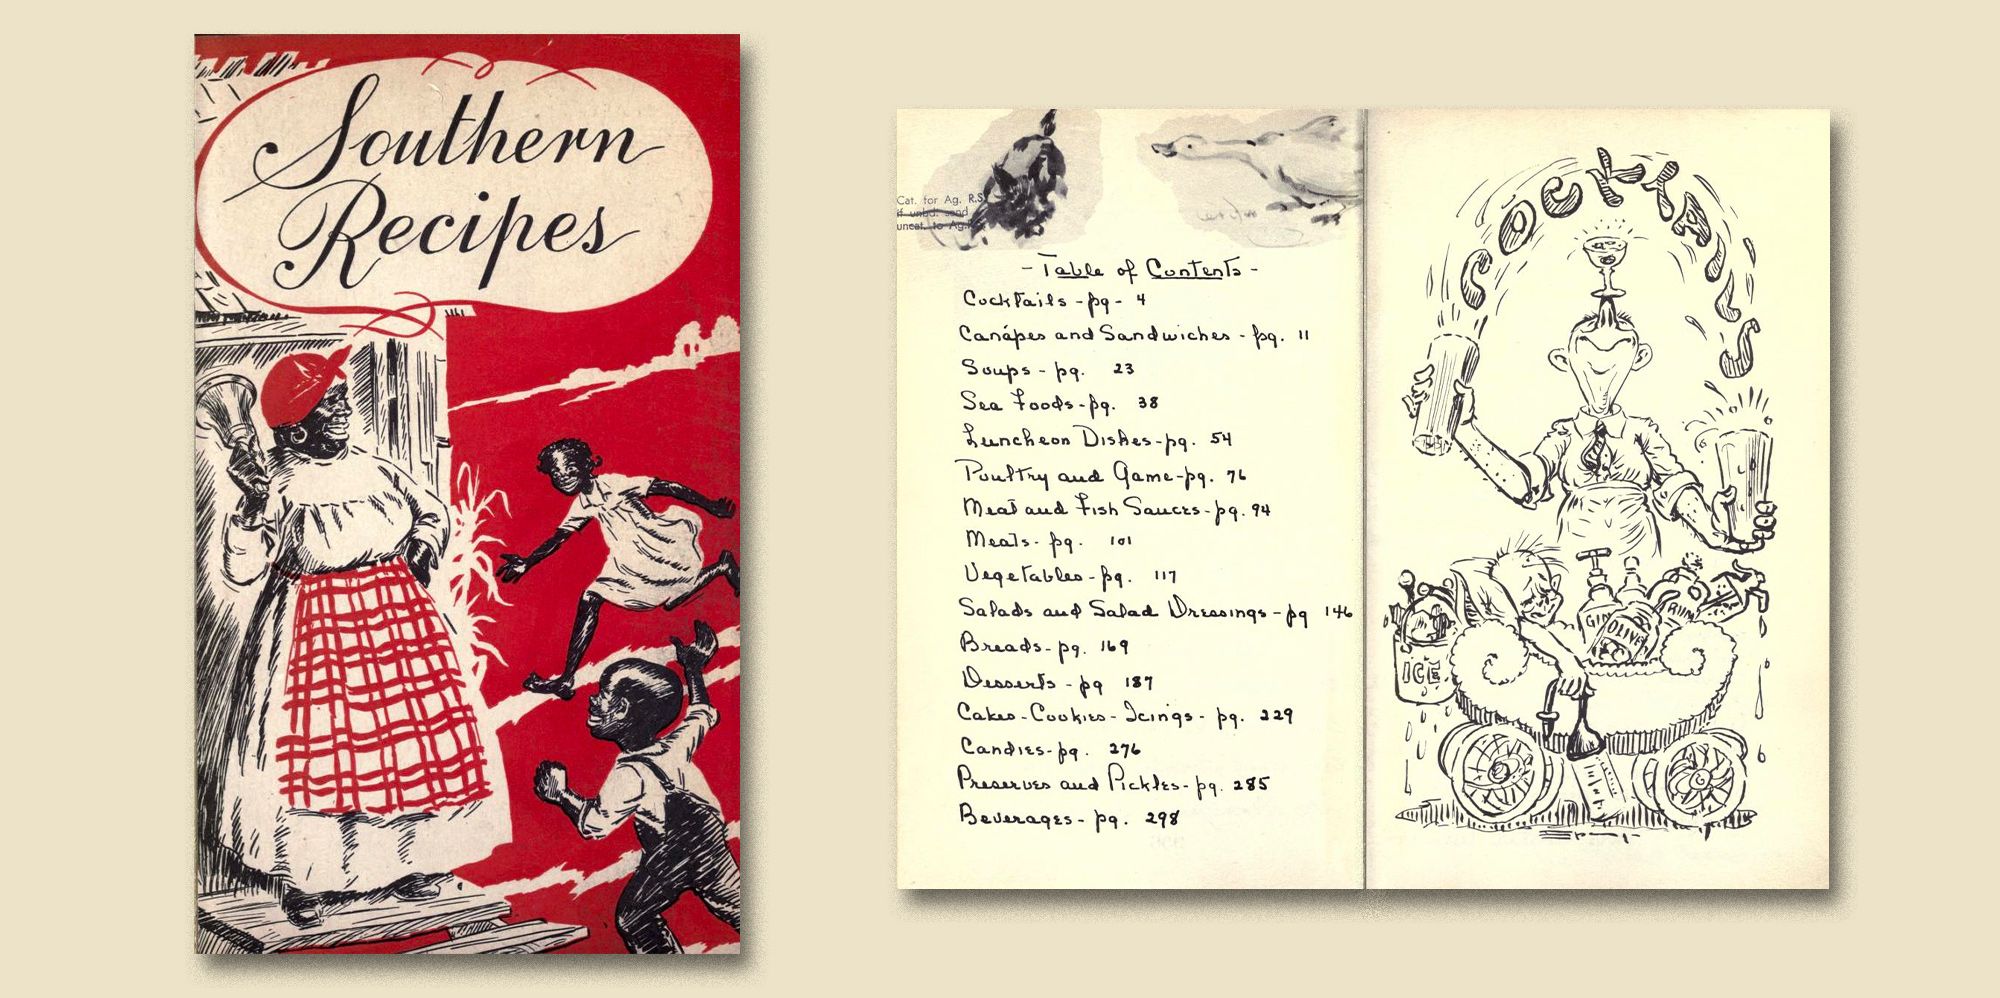 Southern
Recipes
Cat. for Ag. R.S.
if unbd. send
uncat. to Ag.
- Table of Contents -
Cocktails - pg - 4
Canápes and Sandwiches - pg. 11
Soups - pg. 23
Sea Foods - pg. 38
Luncheon Dishes - pg. 54
Poultry and Game - pg. 76
Meat and Fish Sauces - pg. 94
Meats - pg. 101
Vegetables - pg. 117
Salads and Salad Dressings - pg 146
Breads - pg. 169
Desserts - pg 187
Cakes - Cookies - Icings - pg. 229
Candies - pg. 276
Preserves and Pickles - pg. 285
Beverages - pg. 298
COCKTAILS
GIN
OLIVE
RUM
ICE